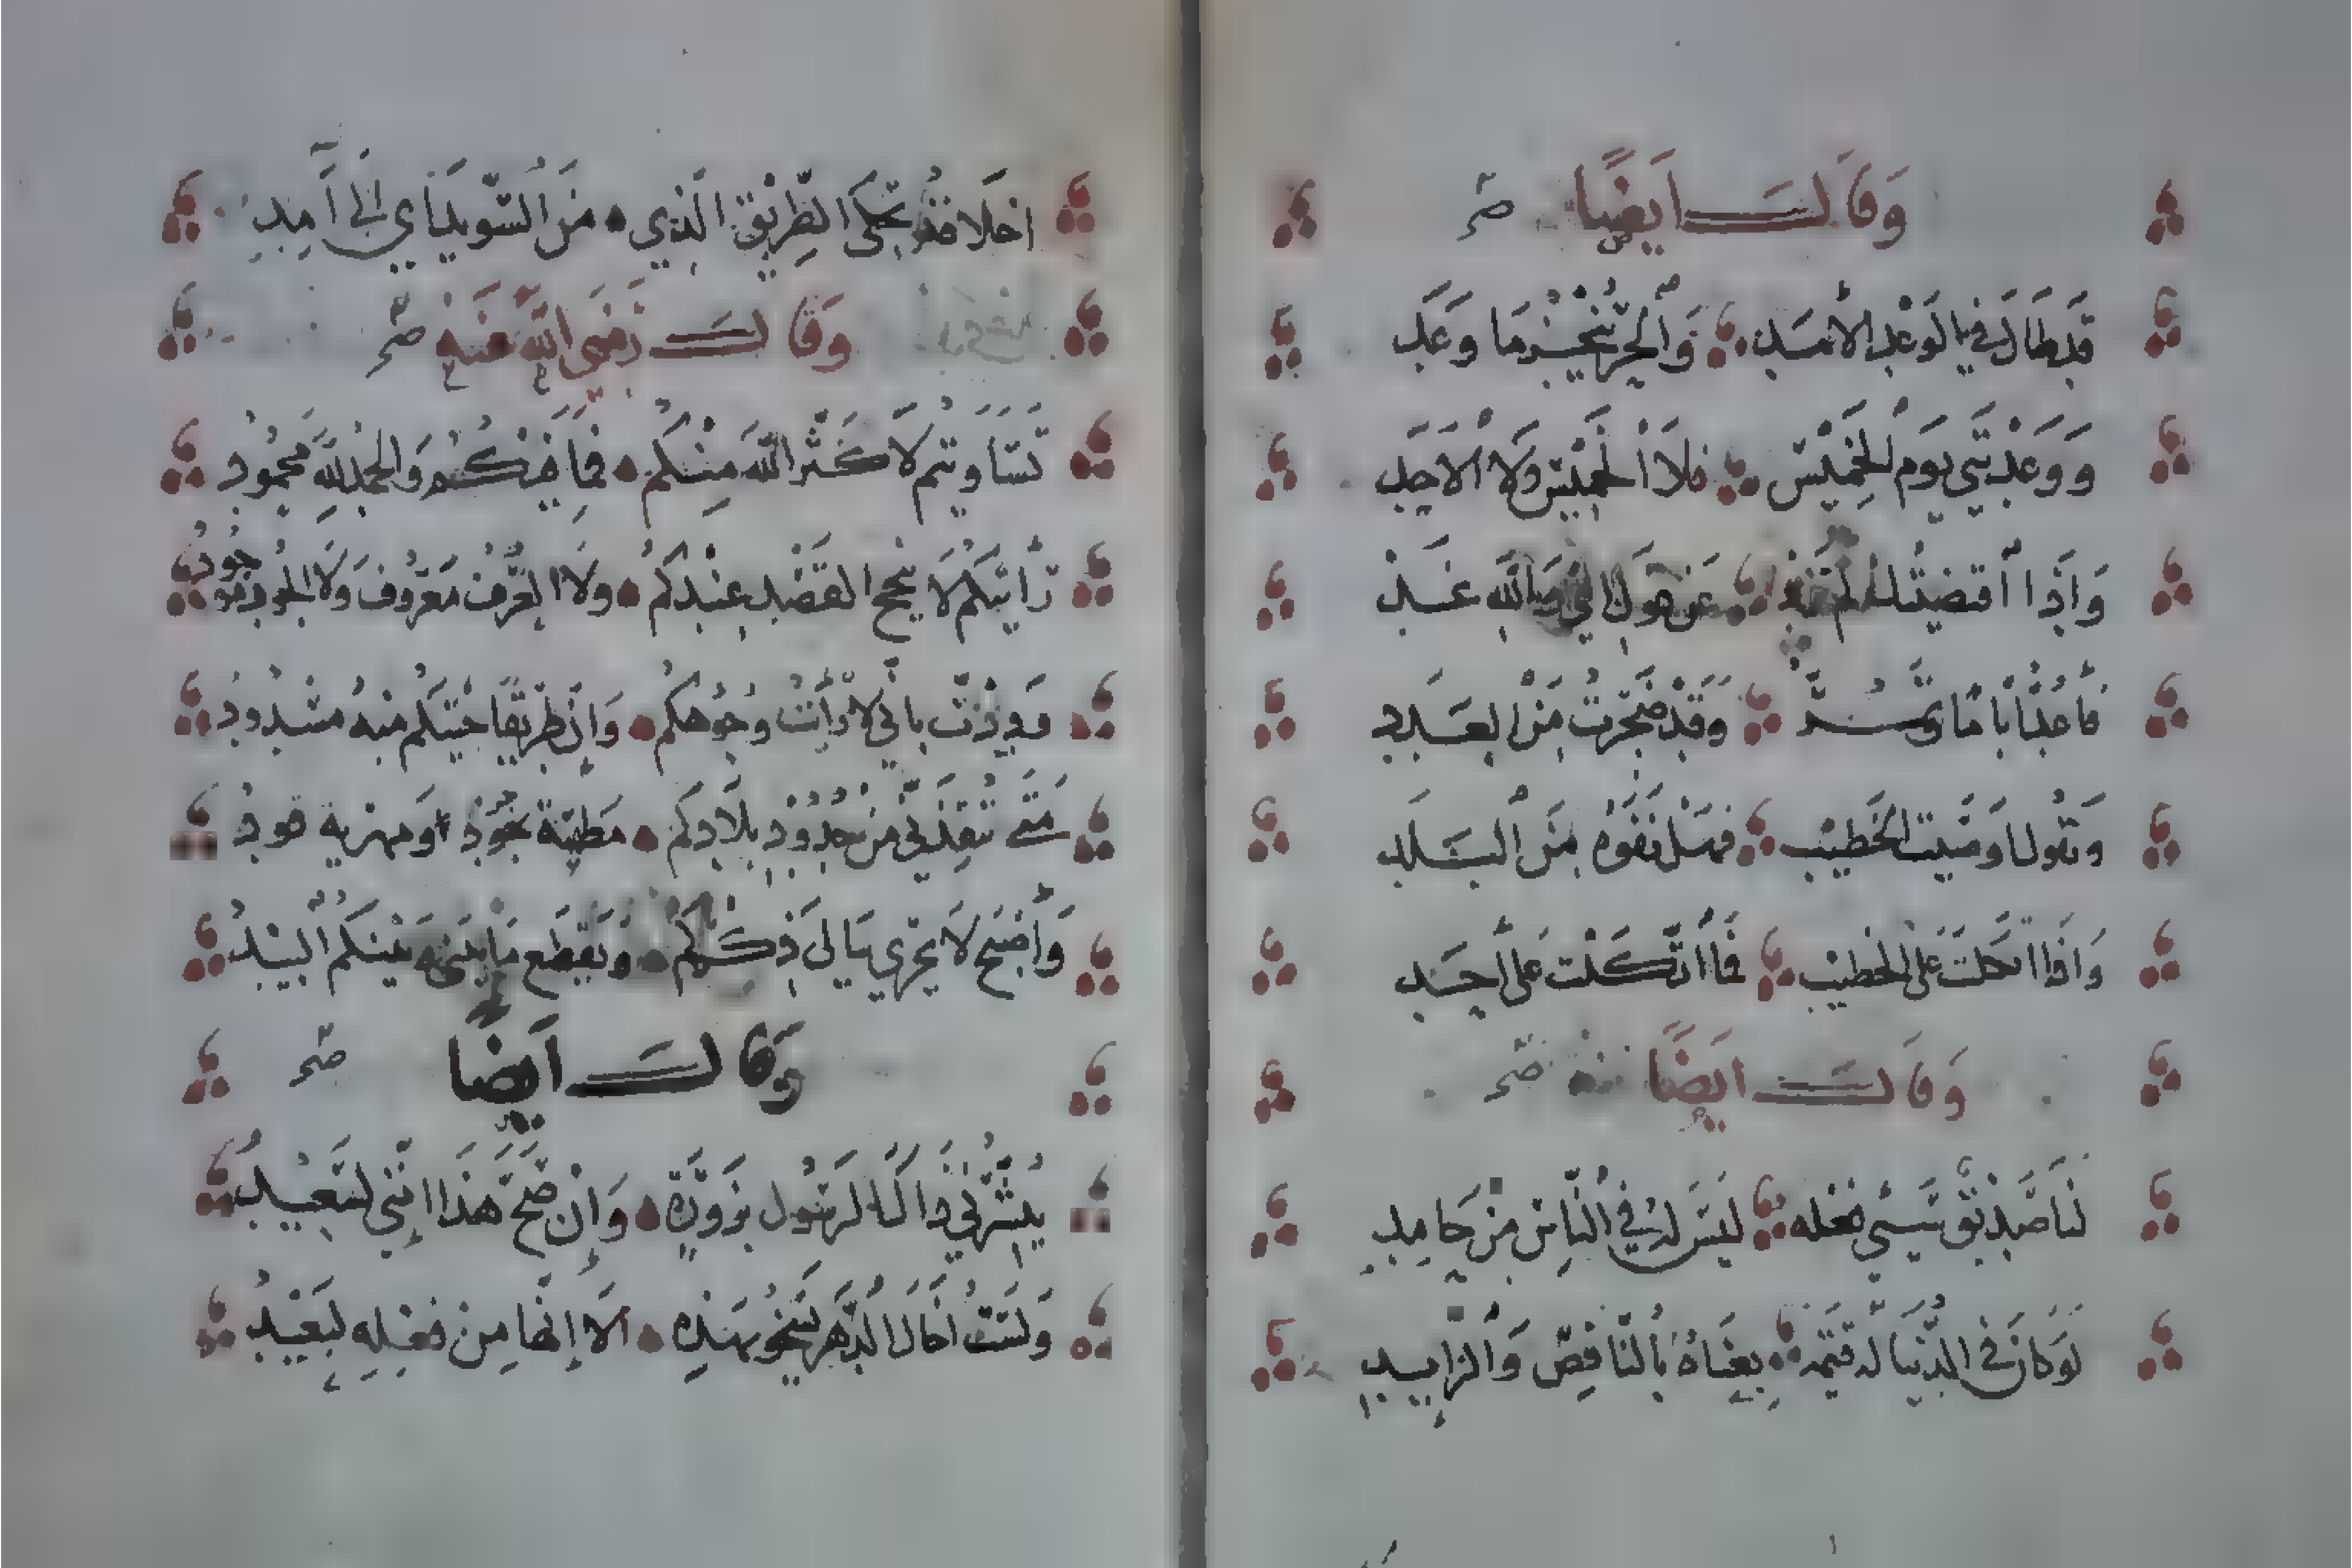 وَقَالَ اَيضًا صح
قَد طَالَ في الوَعْدِ الأمَد وَالحُرُّ يُنْجِزُ مَا وَعَد
وَوَعَدْتَني يَومَ الخَمِيْس فلاَ الخَمِيْس ولا الاَحَد
وَاِذَا اقتضيتُك لم تزد عن قول اي والله غَد
فأعُدُّ أيامًا تَمُرُّ وَقَدْ ضَجَرْتُ مِنَ العَدَد
وَتقُول اوصَيت الخَطيْب فهَل نَفَوْهُ مِنَ البَلَد
وَاذا اتكلت عَلى الخطيب فَما اتّكلت عَلى أحَد
وَقَالَ ايضًا صح
لنا صَديق سَيئ فعله ليسَ لهُ في النّاس مِنْ حَامِد
لَو كانَ في الدُّنيَا له قيمَة بعناهُ بالنّاقِص وَالزايد
اخلاي قد الطَّرِيق الّذي منَ السّويدَاي الى آمِد
وَقَالَ رَضِيَ اللَّه عَنه صح
تَسَاوَيتم لا كَثّر الله مِنكُم فمَا فِيكُم وَالحَمْد للهِ مَحمُود
رَأيتكُم لا ينجح القَصْد عِنْدَكُم ولا العُرْف مَعْرُوف وَلا الجُود مَوجُودُ
وَدِدْت بأني لا رَأيْت وجُوهكُم وَان طَريقًا جئتكُم منه مَسْدُودُ
مَتَى تُبْعِدَنّي مِنْ حُدُوْدِ بِلاَدكُم مَطيّة جُود او مهرية قود
وَأصْبَح لا يجري ببَالي ذِكْركُم وَيقطع مَا بَيْني وَبَيْنكُم البيْد
وَقَالَ اَيضًا صح
يُبَشّرُني ذاك الرسُول بزَوْرَةٍ وَإِنْ صَحَّ هَذَا اِنَّني لسَعِيْدُ
وَلَسْتُ اخَال الدّهر يَسْخُو بهَذِه ألا إنّهَا مِنْ فعْلِهِ لبَعِيْدُ